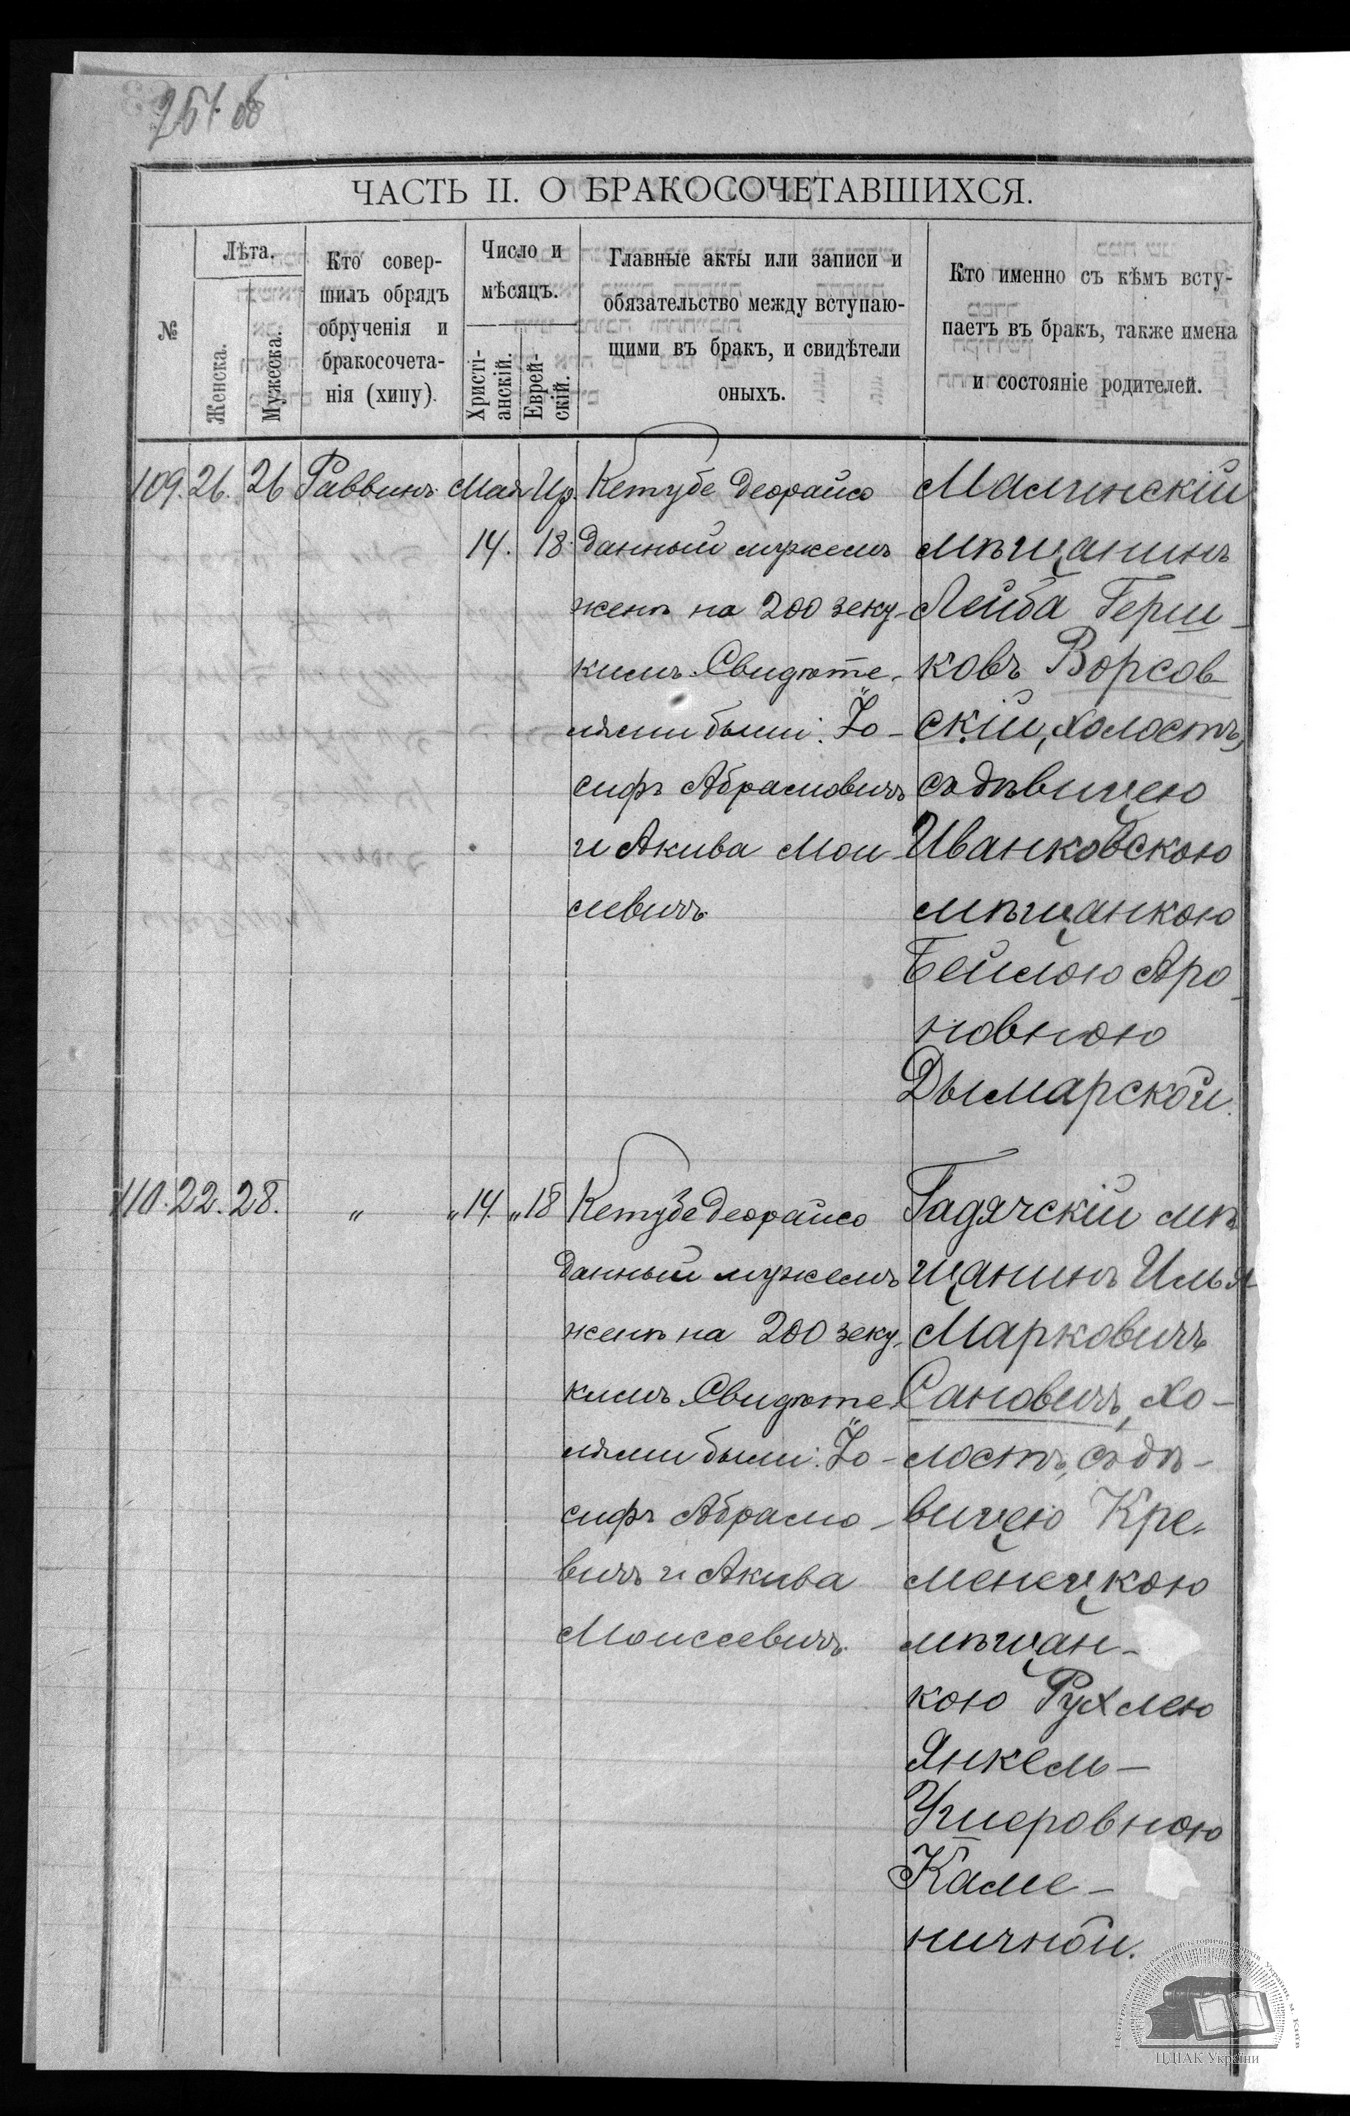 ЧАСТЬ II. О БРАКОСОЧЕТАВШИХСЯ.
№
Лѣта.
Женска.
Мужеска.
Кто совер-
шилъ обрядъ
обрученія и
бракосочета-
нія (хипу).
Число и
мѣсяцъ.
Христі-
анскій.
Еврей-
скій.
Главные акты или записи и
обязательство между вступаю-
щими въ бракъ, и свидѣтели
оныхъ.
Кто именно съ кѣмъ всту-
паетъ въ бракъ, также имена
и состояніе родителей.
109. 26. 26 Раввинъ Мая Ир.
14. 18.
Кетубе деорайсо
данный мужемъ
женѣ на 200 зеку-
кимъ. Свидѣте-
лями были: Іо-
сифъ Абрамовичъ
и Акива Мои-
севичъ.
Малинскій
мѣщанинъ
Лейба Герш-
ковъ Ворсов-
скій, холостъ,
съ дѣвицею
Иванковскою
мѣщанкою
Бейлою Аро-
новною
Дымарской.
110. 22. 28. „ „ 14. „ 18
Кетубе деорайсо
данный мужемъ
женѣ на 200 зеку-
кимъ. Свидѣте-
лями были: Іо-
сифъ Абрамо-
вичъ и Акива
Моисеевичъ.
Гадячскій мѣ
щанинъ Илья
Марковичъ
Сановичъ, хо-
лостъ, съ дѣ-
вицею Кре-
менецкою
мѣщан-
кою Рухлею
Янкель-
Ушеровною
Каме-
ничной.
ЦДІАК України